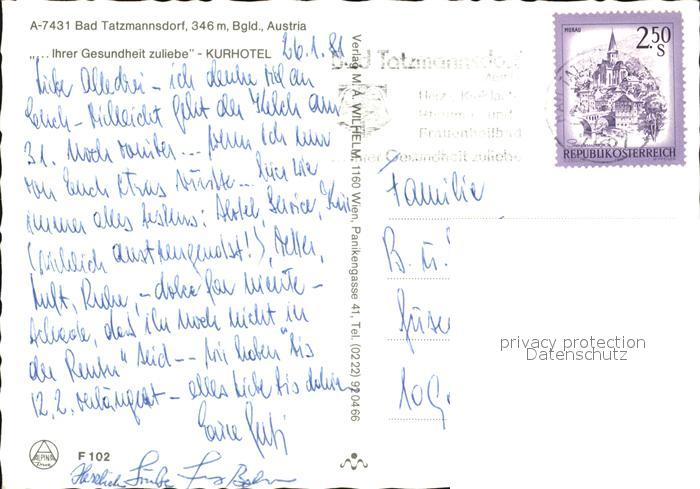 A-7431 Bad Tatzmannsdorf, 346 m, Bgld., Austria
„... Ihrer Gesundheit zuliebe" - KURHOTEL
26.1.81
Liebe Alle drei – ich denke viel an
Euch – vielleicht geht der Kelch am
31. noch vorüber... wenn ich nur
von Euch etwas wüsste... hier wie
immer alles bestens: Hotel, Service, Kur
(wirklich anstrengendst!), Wetter,
Luft, Ruhe, – dolce far niente –
schade, dass ihr noch nicht in
der Rente" seid – wir haben bis
12.2. verlängert – alles Liebe bis dahin
Eure
Herzliche Grüße
F 102
ALPINA
Verlag M. A. WILHELM, 1160 Wien, Panikengasse 41, Tel. (0222) 92 04 66
Bad Tatzmannsdorf
Frauenheilbad
Ihrer Gesundheit zuliebe
MURAU
2.50
S
REPUBLIK ÖSTERREICH
Familie
B. u.
privacy protection
Datenschutz